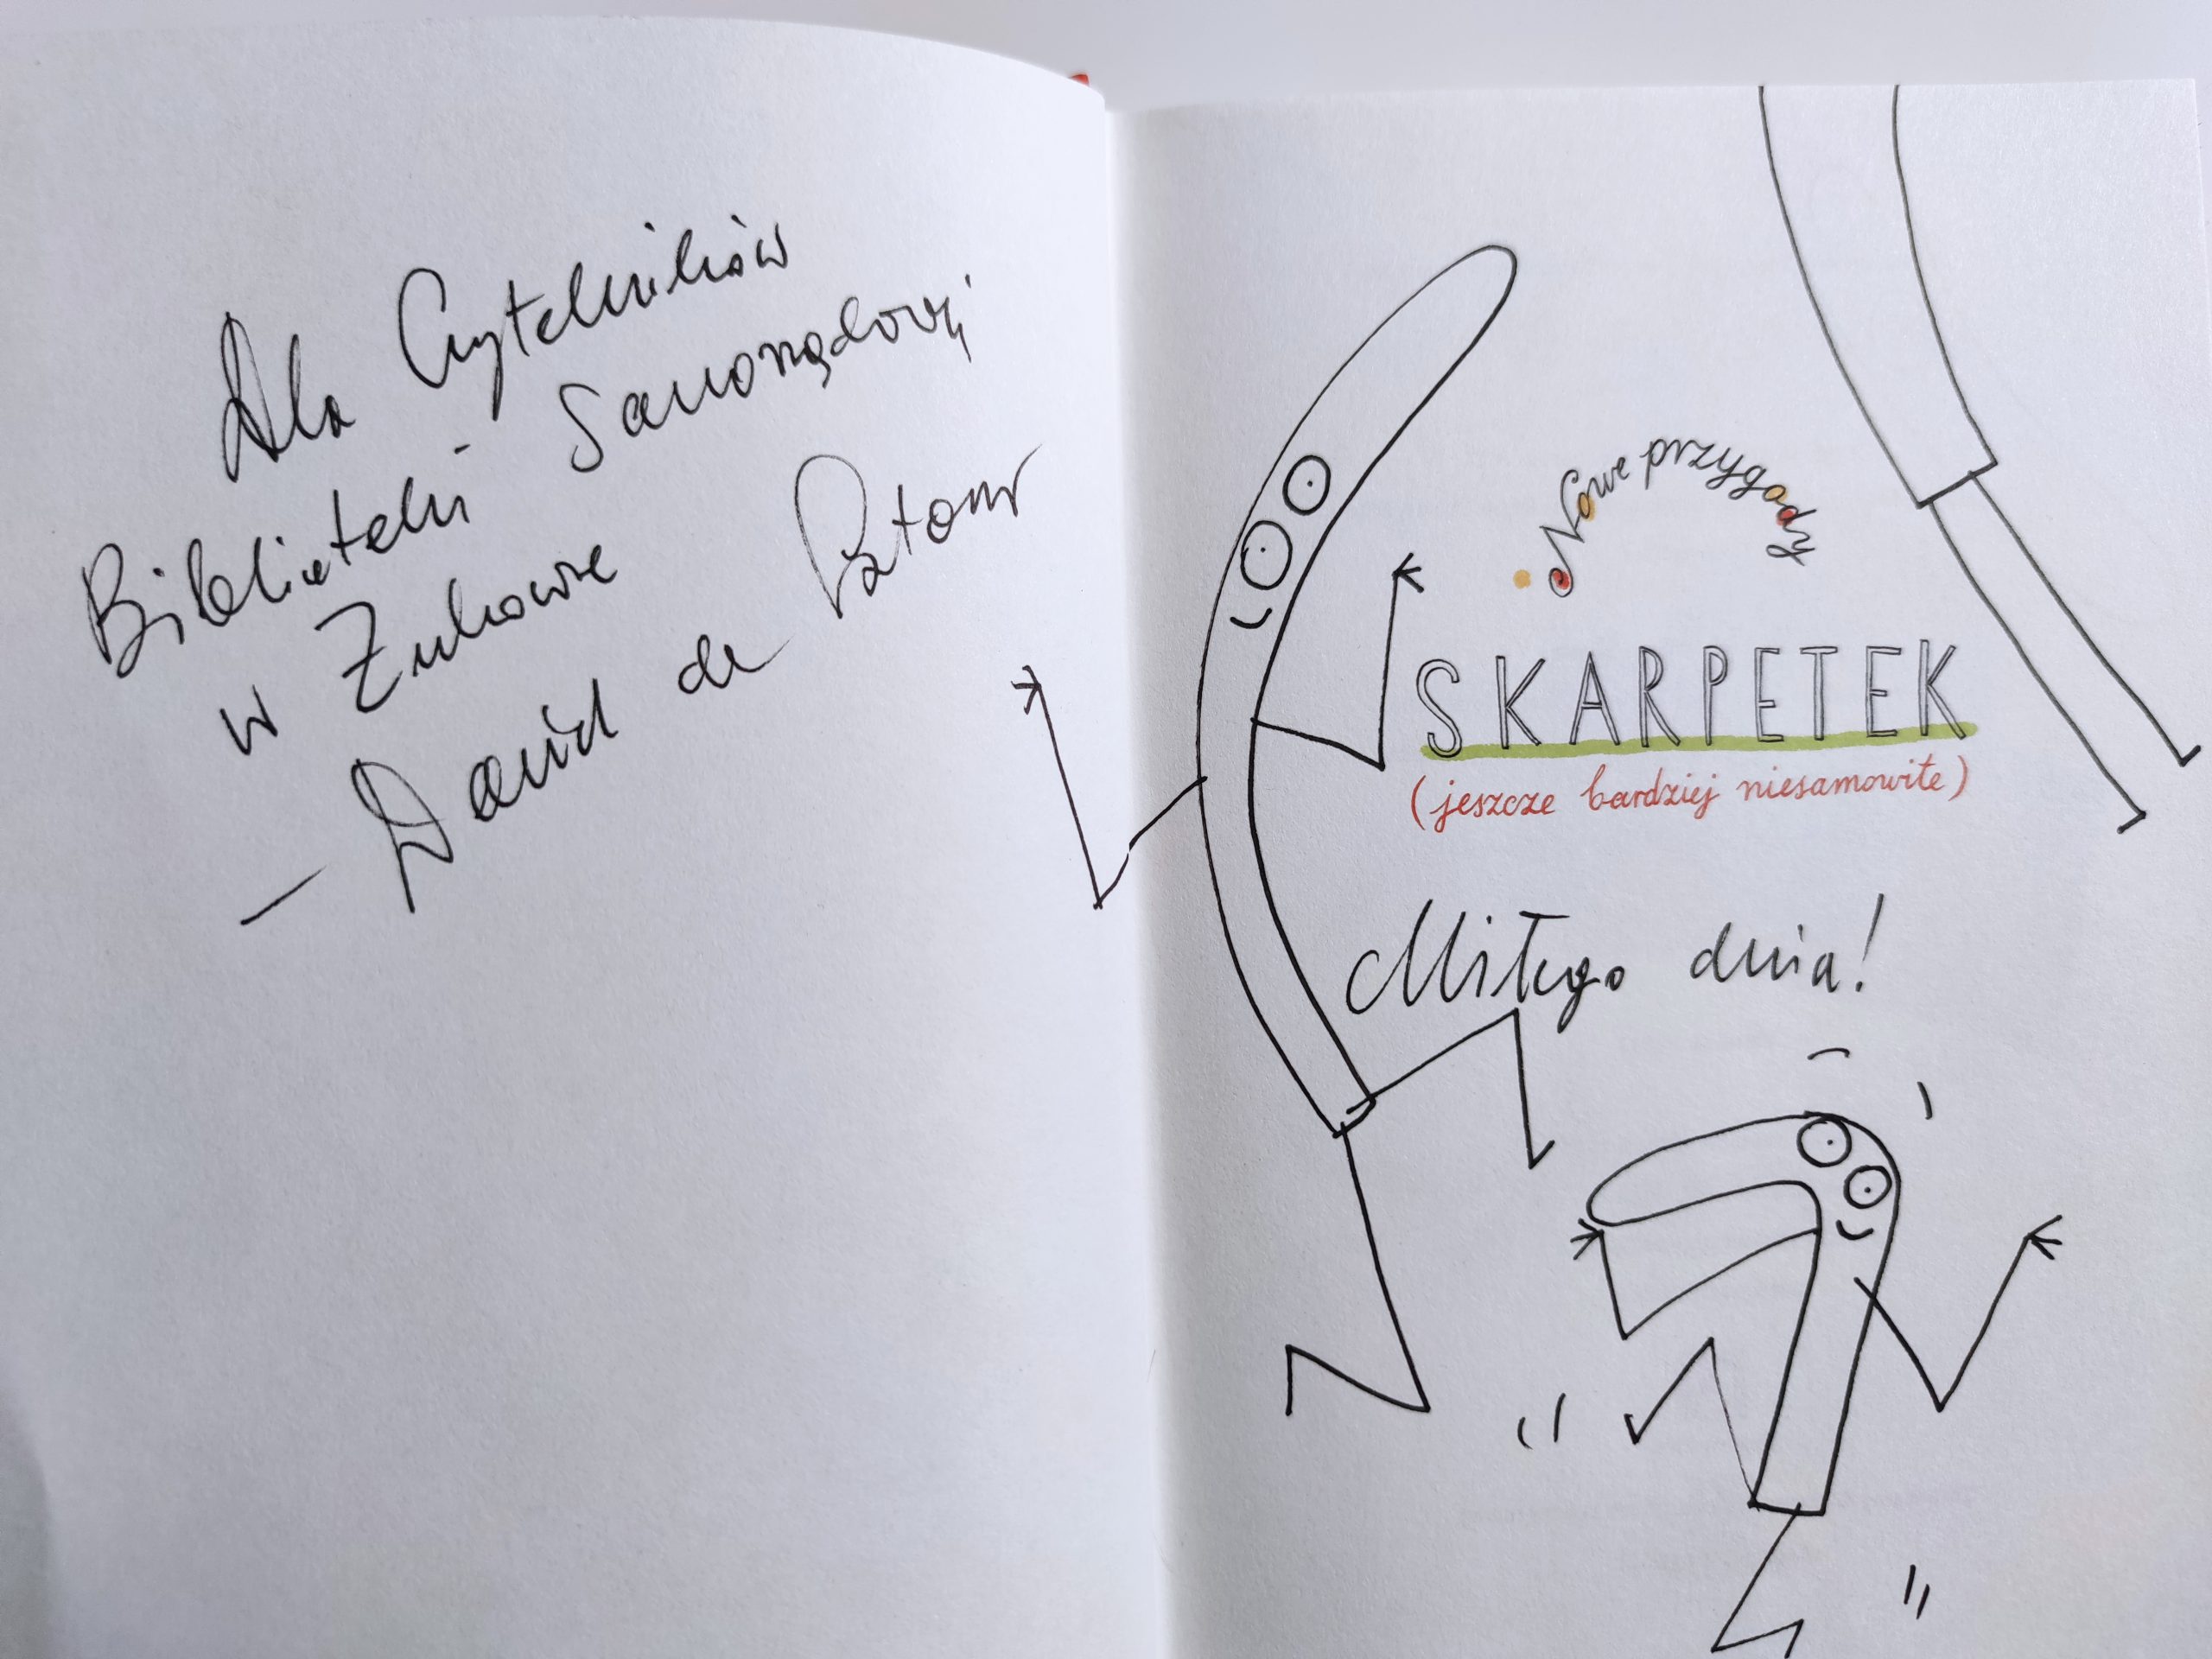 Dla Czytelników
Biblioteki Samorządowej
w Żukowie
– Daniel de Latour
Nowe przygody
SKARPETEK
(jeszcze bardziej niesamowite)
Miłego dnia!